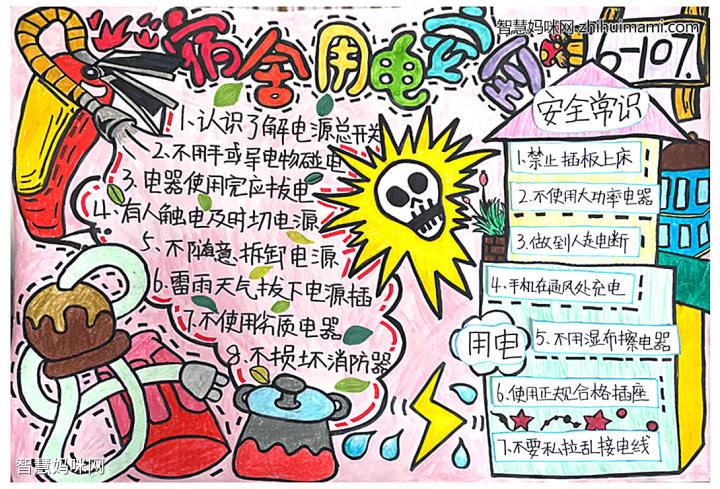 智慧妈咪网 zhihuimami.com
宿舍用电安全
6-107.
1、认识了解电源总开关
2、不用手或导电物碰电
3、电器使用完应拔电
4、有人触电及时切电源
5、不随意拆卸电源
6、雷雨天气拔下电源插
7、不使用劣质电器
8、不损坏消防器
安全常识
1、禁止插板上床
2、不使用大功率电器
3、做到人走电断
4、手机在通风处充电
用电
5、不用湿布擦电器
6、使用正规合格插座
7、不要私拉乱接电线
智慧妈咪网